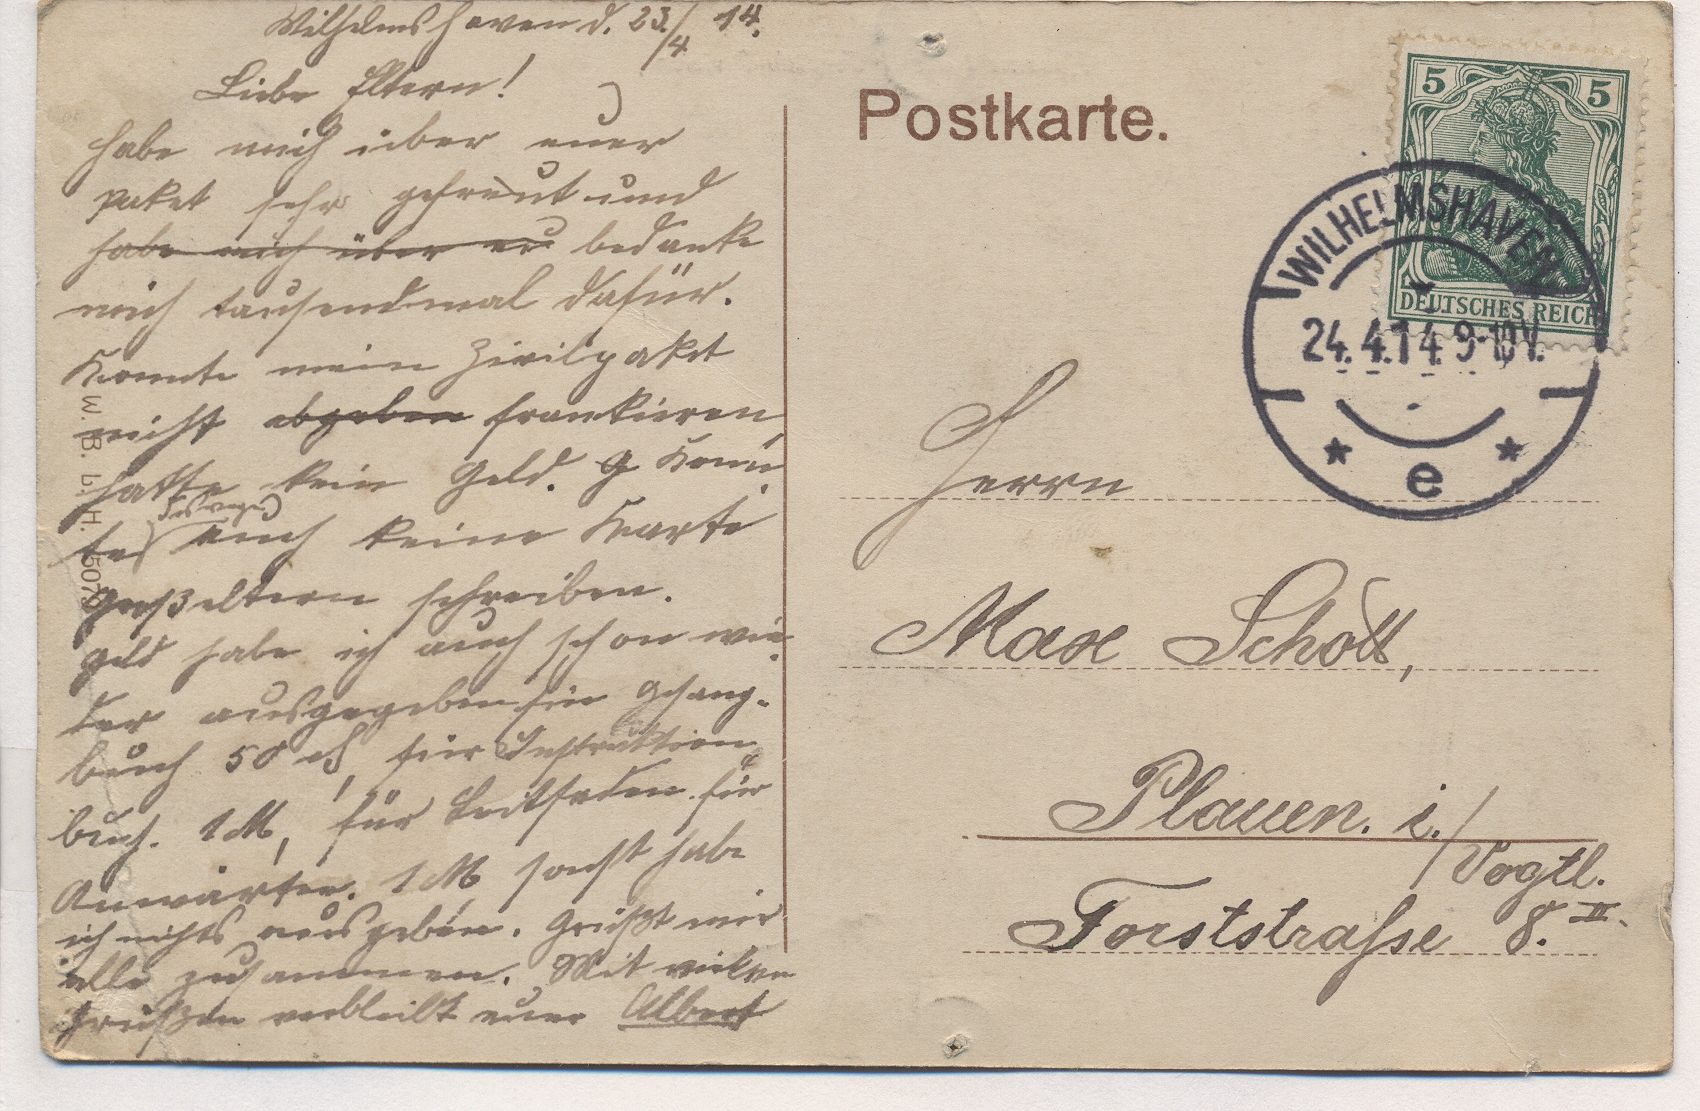 Wilhelmshaven d. 23./4 14.
Liebe Eltern!
habe mich über euer
paket sehr gefreut und
habe mich über eu bedanke
mich tausendmal dafür.
Konnte mein Zivilpaket
nicht abgeben frankieren,
hatte kein Geld. G Konn-
deswegen
tes auch keine Karte
Großeltern schreiben.
Geld habe ich auch schon wie-
der ausgegeben für Gesang-
buch 50 ₰, für Instruktion
buch. 1 M, für Leitfaden für
Anwärter. 1 M sonst habe
ich nichts ausgeben. Grüßt mir
alle zusammen. Mit vielen
Grüßen verbleibt euer Albert
W. B. L. H. 507
Postkarte.
5 5
DEUTSCHES REICH
WILHELMSHAVEN
24.4.14 9-10V.
* e *
Herrn
Max Schott,
Plauen. i./Vogtl.
Forststraße 8. III.